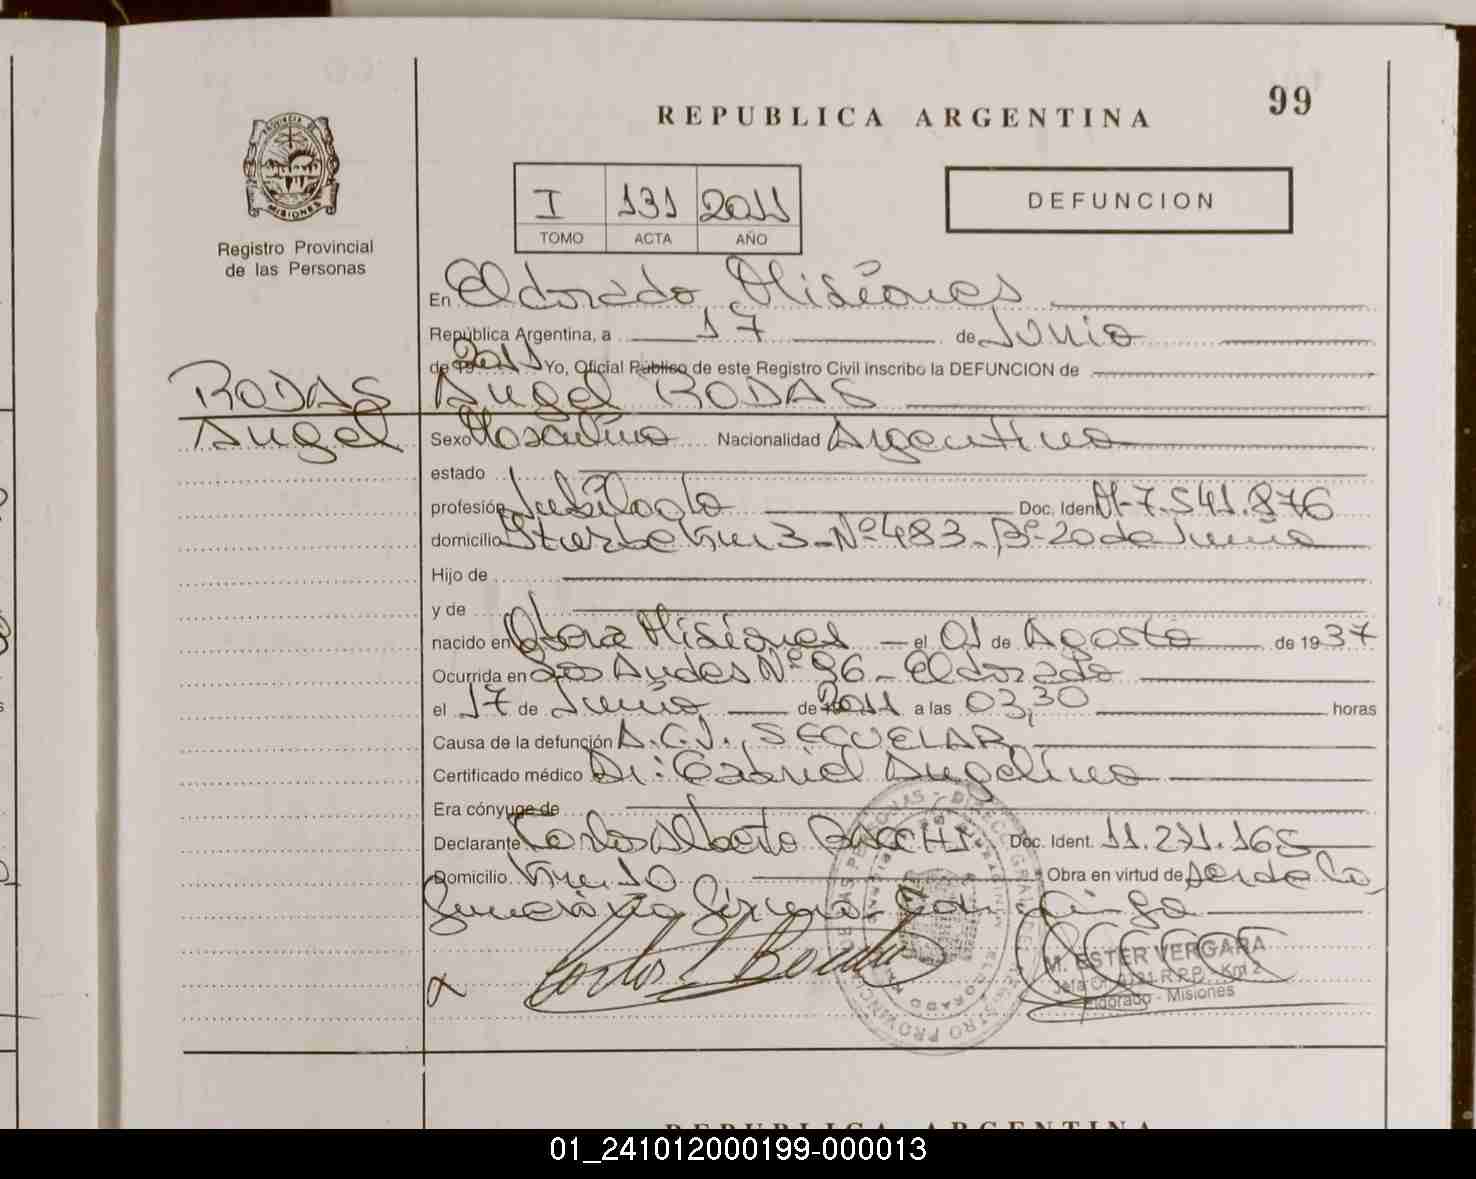 99
REPUBLICA ARGENTINA
I 131 2011
TOMO ACTA AÑO
DEFUNCION
PROVINCIA DE
MISIONES
Registro Provincial
de las Personas
En Eldorado, Misiones
República Argentina, a 17 de Junio
de 19 2011 Yo, Oficial Público de este Registro Civil inscribo la DEFUNCION de
RODAS
Angel
Angel RODAS
Sexo Masculino Nacionalidad Argentina
estado
profesión Jubilado Doc. Ident. M-7.541.876
domicilio Iturbe Km 3-Nº483-Bº-20 de Junio
Hijo de
y de
nacido en Obera Misiones el 01 de Agosto de 1937
Ocurrida en Los Andes Nº 96 - Eldorado
el 17 de Junio de 2011 a las 03,30 horas
Causa de la defunción A.C.V. SECUELAR
Certificado médico Dr: Gabriel Angelino
Era cónyuge de
Declarante Carlos Alberto Doc. Ident. 11.271.165
Domicilio Km. 10 Obra en virtud de ser de la
M. ESTER VERGARA
Eldorado - Misiones
REPUBLICA ARGENTINA
01_241012000199-000013